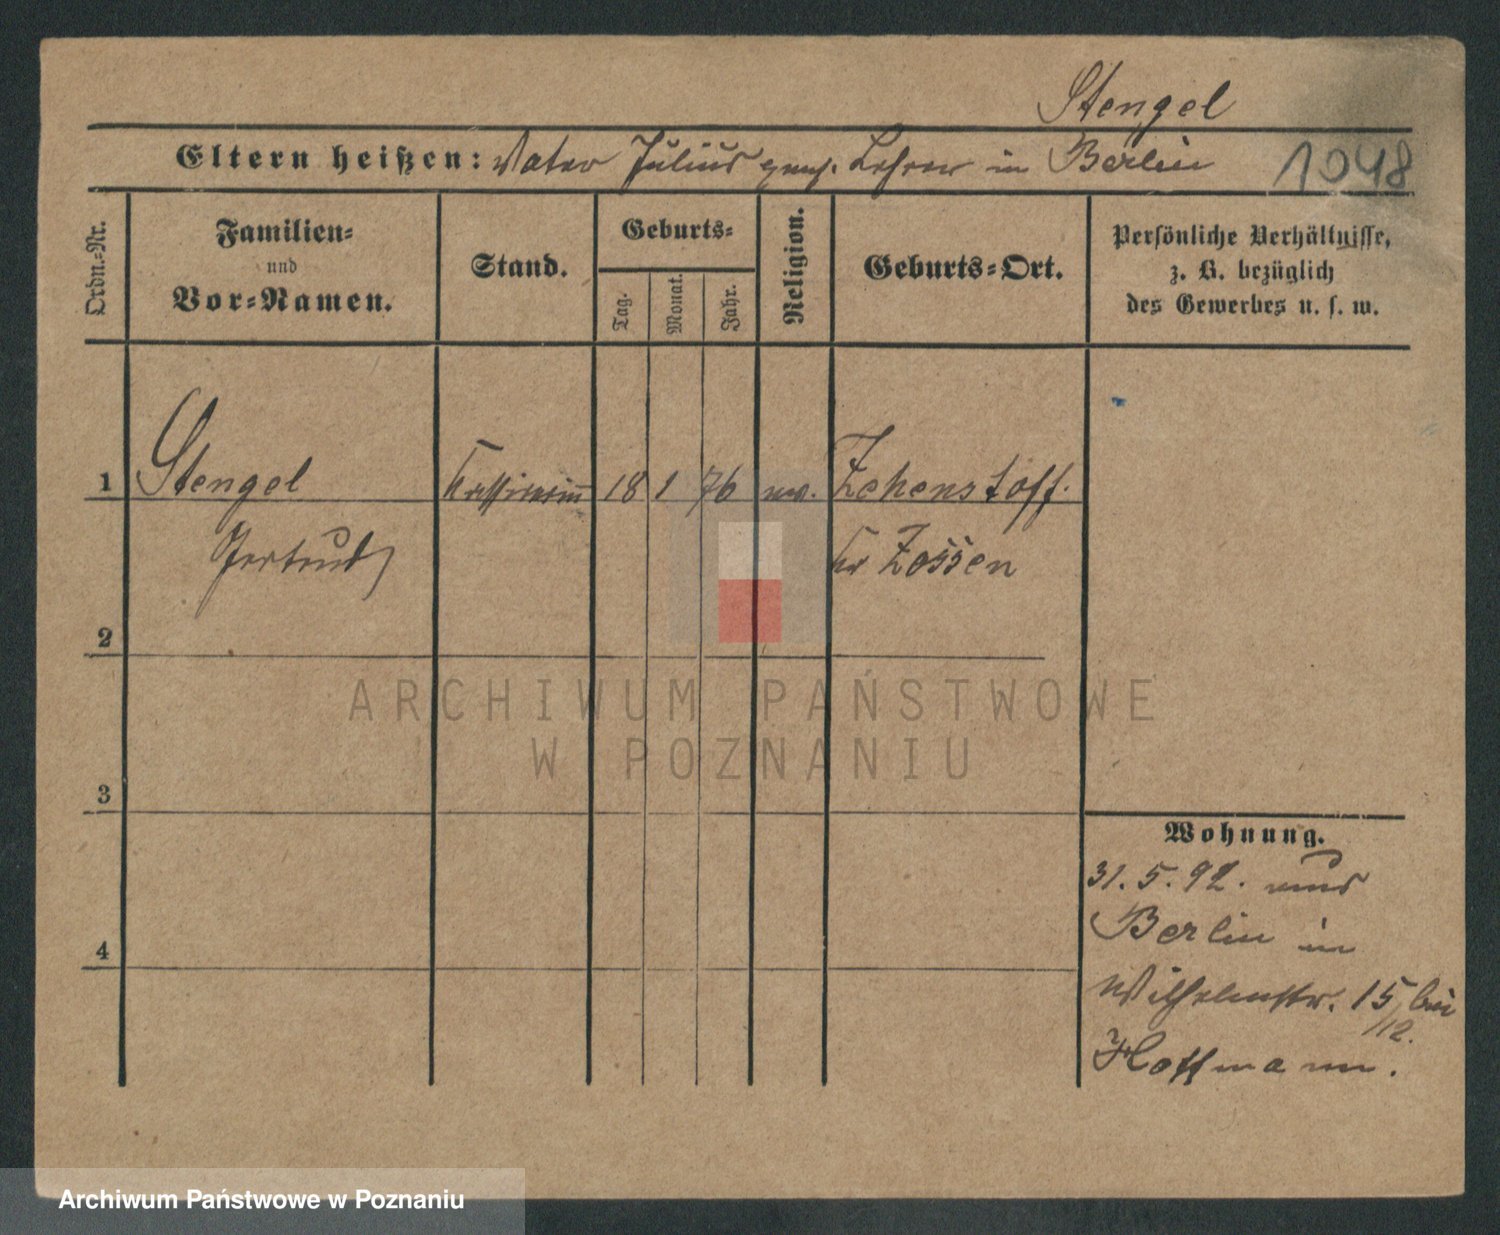 Stengel
Eltern heißen: Vater Julius gew. Lehrer in Berlin
1048
Ordn.-Nr.
Familien-
und
Vor-Namen.
Stand.
Geburts-
Tag.
Monat.
Jahr.
Religion.
Geburts-Ort.
Persönliche Verhältnisse,
z. B. bezüglich
des Gewerbes u. s. w.
1 Stengel Kassirerin 18 1 76 ev. Zehenstoff.
Gertrud Kr Zossen
2
ARCHIWUM PAŃSTWOWE
W POZNANIU
3
Wohnung.
31. 5. 92. aus
Berlin in
4
Wilhelmstr. 15 bei
/12.
Hoffmann.
Archiwum Państwowe w Poznaniu